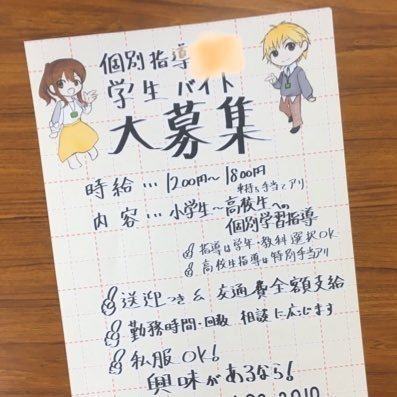 個別指導
学生バイト
大募集
時給…1200円〜1800円
※特別手当てアリ
内容…小学生〜高校生への
個別学習指導
指導は学年・教科選択OK
高校生指導は特別手当アリ
送迎つき& 交通費全額支給
勤務時間・回数 相談に応じます
私服OK!
興味があるなら!